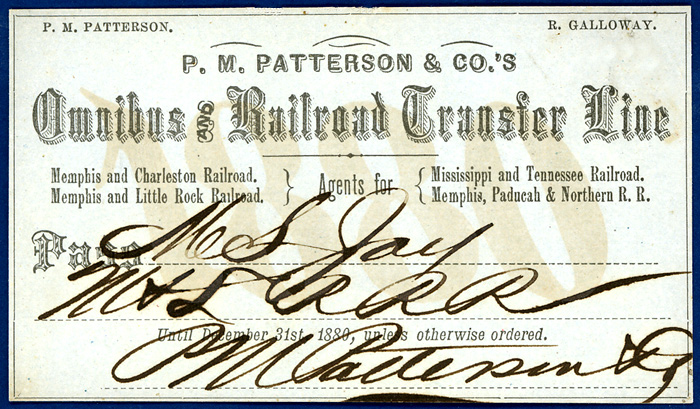 P. M. PATTERSON. R. GALLOWAY.
P. M. PATTERSON & CO.'S
Omnibus and Railroad Transfer Line
Memphis and Charleston Railroad.
Memphis and Little Rock Railroad.
Agents for
Mississippi and Tennessee Railroad.
Memphis, Paducah & Northern R. R.
1880
Pass M S Jay
M & L R R R
Until December 31st, 1880, unless otherwise ordered.
P M Patterson & Co